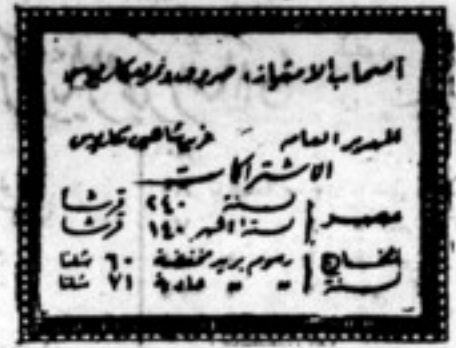 أصحاب الامتياز: صروف ونمر ومكاريوس
المدير العام - فريد شاهين مكاريوس
الاشتراكات
مصر | سنة ٢٤٠ قرشا
ستة اشهر ١٤٠ قرشا
الخارج سنة | رسوم بريد مخفضة ٦٠ شلنا
" " عادية ٧١ شلنا